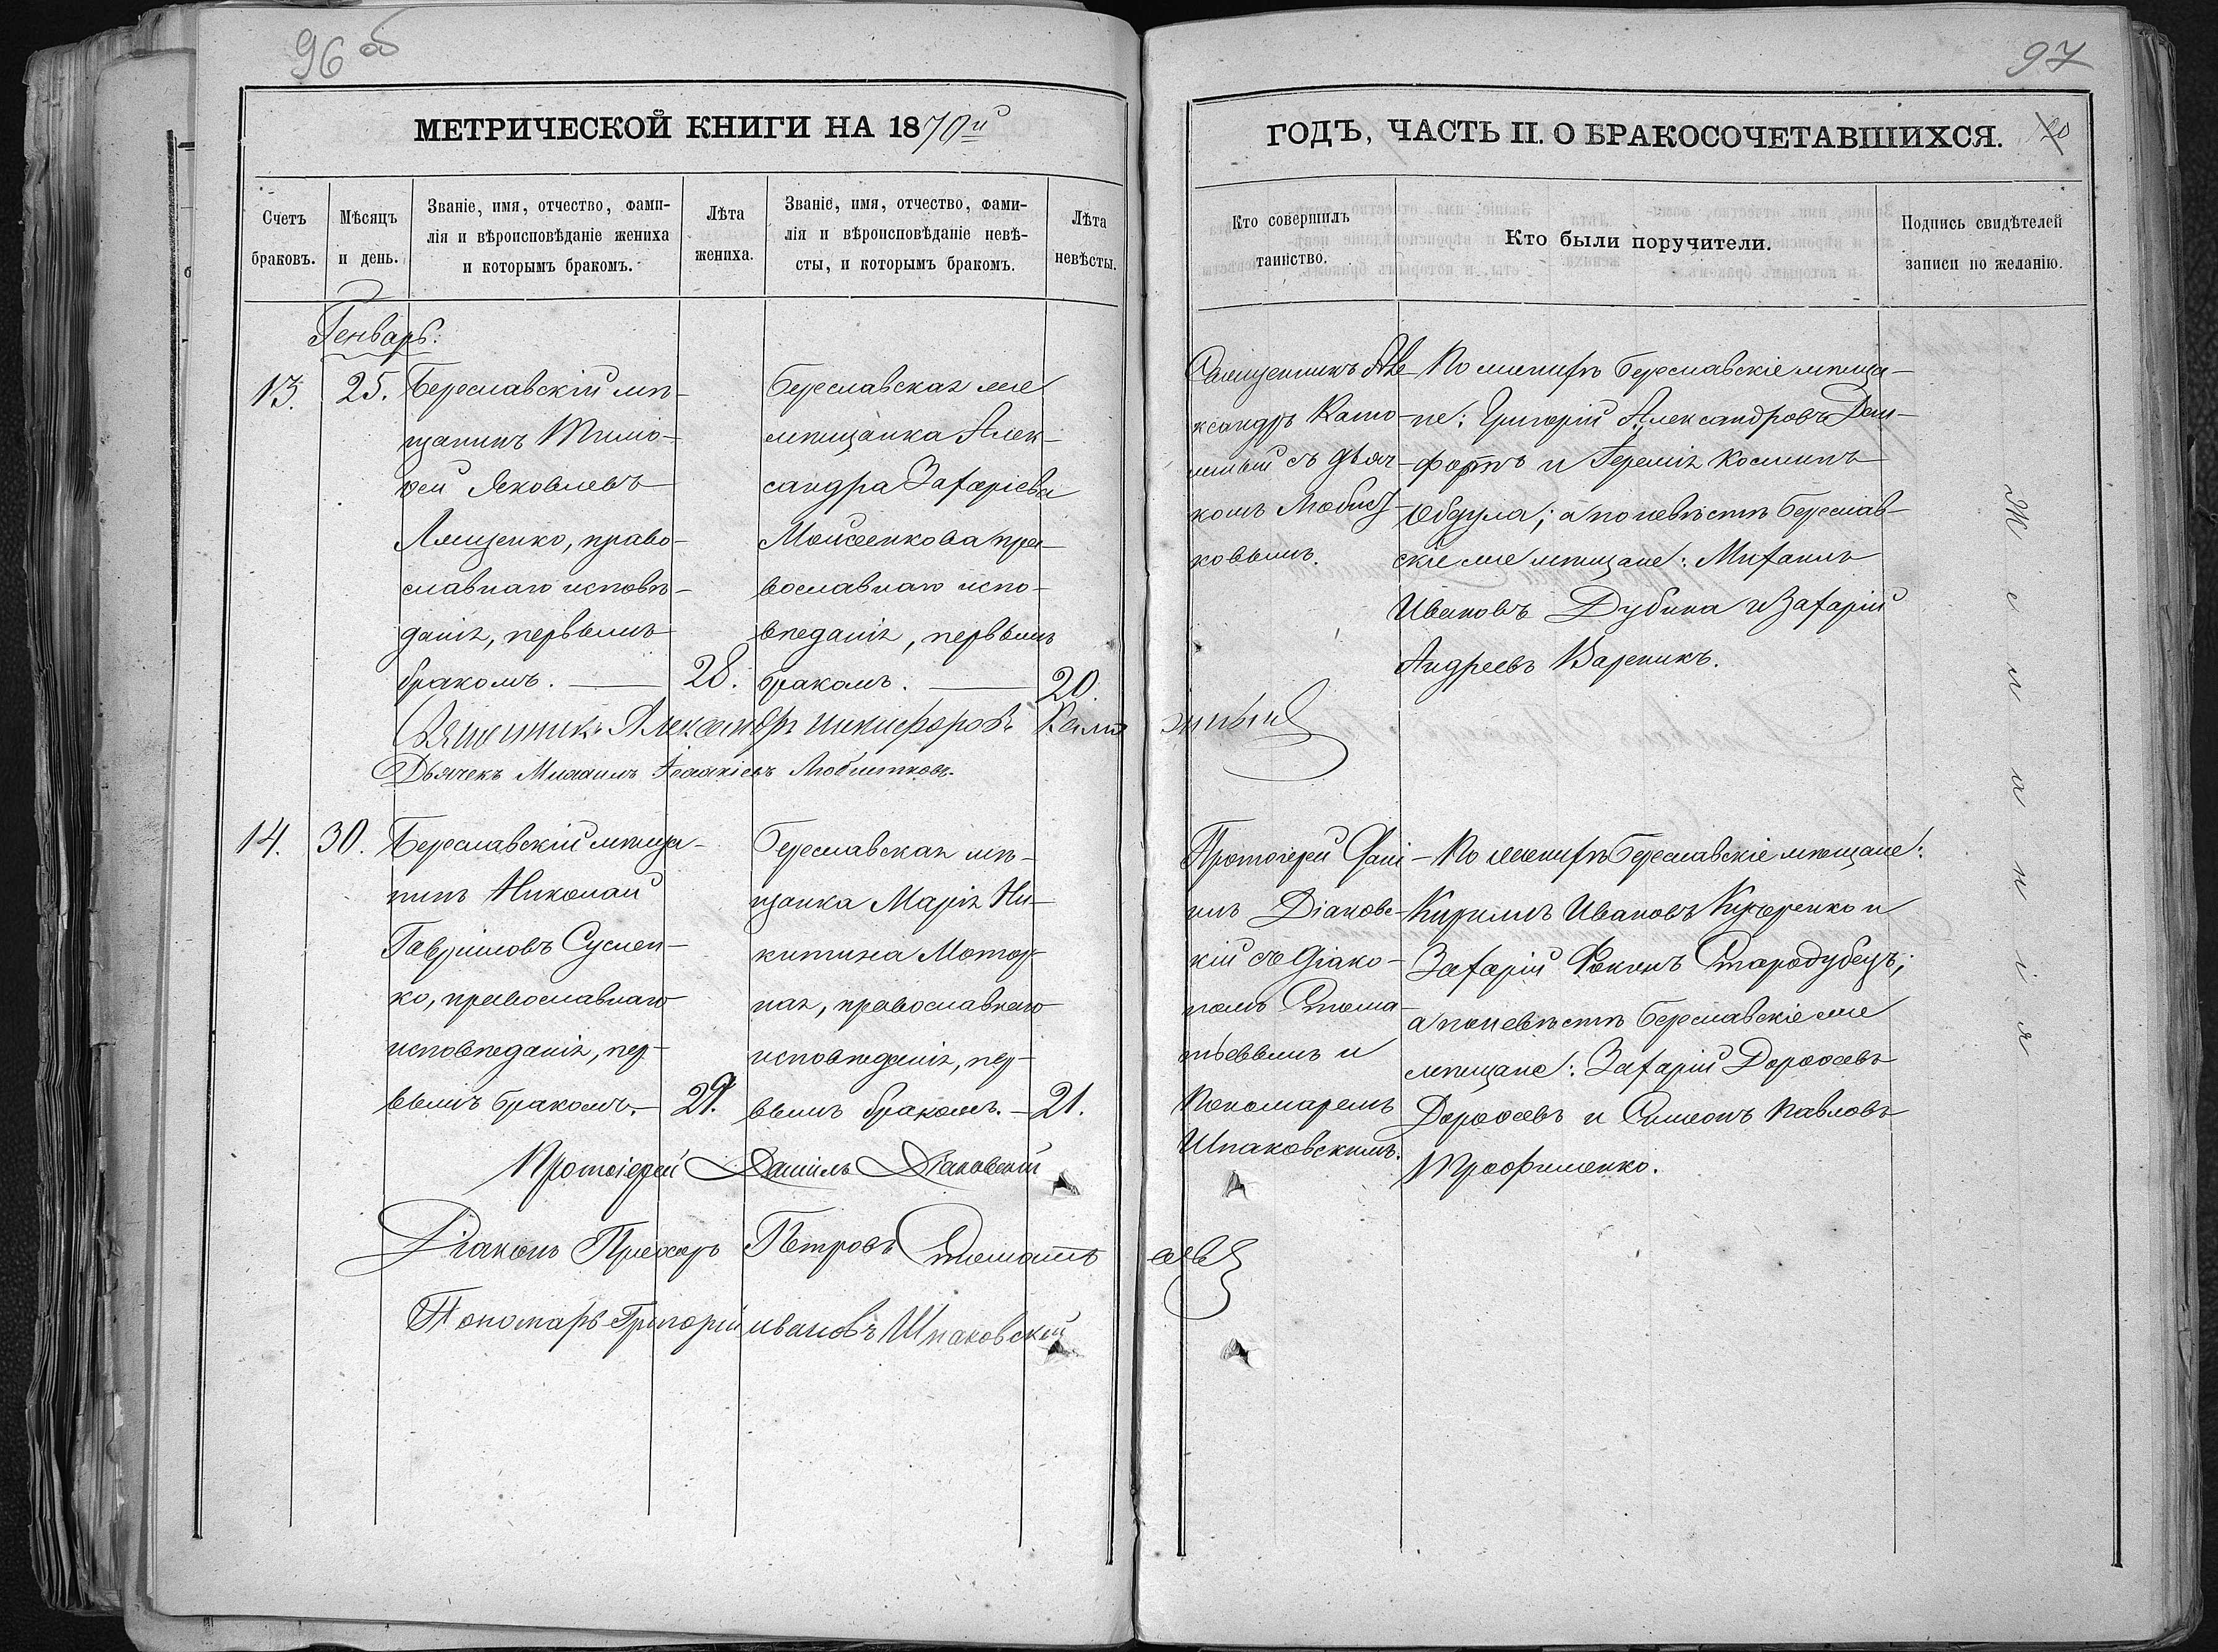 96 об
МЕТРИЧЕСКОЙ КНИГИ НА 1870й
Счетъ браковъ.
Мѣсяцъ и день.
Званіе, имя, отчество, фами-
лія и вѣроисповѣданіе жениха
и которымъ бракомъ.
Лѣта
жениха.
Званіе, имя, отчество, фами-
лія и вѣроисповѣданіе невѣ-
сты, и которымъ бракомъ.
Лѣта
невѣсты.
Генварь.
13. 25.
Береславскій мѣ-
щанинъ Тимо-
ѳей Яковлевъ
Лященко, право-
славнаго исповѣ-
данія, первымъ
бракомъ. — 28.
Береславская же
мѣщанка Алек-
сандра Захаріева
Моисеенкова пра-
вославнаго испо-
вѣданія, первымъ
бракомъ. — 20.
Священникъ Александръ Никифоровъ
Дьячекъ Михаилъ
14. 30.
Береславскій мѣща-
нинъ Николай
Гавріиловъ Суслен-
ко, православнаго
исповѣданія, пер-
вымъ бракомъ. — 29.
Береславская мѣ-
щанка Марія Ни-
китина
православнаго
исповѣданія, пер-
вымъ бракомъ. — 21.
Протоіерей Даніилъ Діаковскій
Діаконъ Прохоръ Петровъ Стоматьевъ
Пономарь Григорій Ивановъ Шпаковскій
97
ГОДЪ, ЧАСТЬ II. О БРАКОСОЧЕТАВШИХСЯ. 20
Кто совершилъ
таинство.
Кто были поручители.
Подпись свидѣтелей
записи по желанію.
Священникъ Але-
ксандръ
съ дьяч-
комъ
ковымъ.
По женихѣ Береславскіе мѣща-
не: Григорій Александровъ
и Іеремія Косминъ
а по невѣстѣ Береслав-
скіе же мѣщане: Михаилъ
Ивановъ Дубина и Захарій
Андреевъ Вареникъ.
Протоіерей Дані-
илъ Діаковс-
кій съ діако-
номъ Стома-
тьевымъ и
Пономаремъ
Шпаковскимъ.
По женихѣ Береславскіе мѣщане:
Кириллъ Ивановъ Кучеренко и
Захарій Фокинъ Стародубецъ;
а по невѣстѣ Береславскіе же
мѣщане: Захарій Дороѳеевъ
Дороѳеевъ и Симеонъ Павловъ
Трофименко.
Желанія